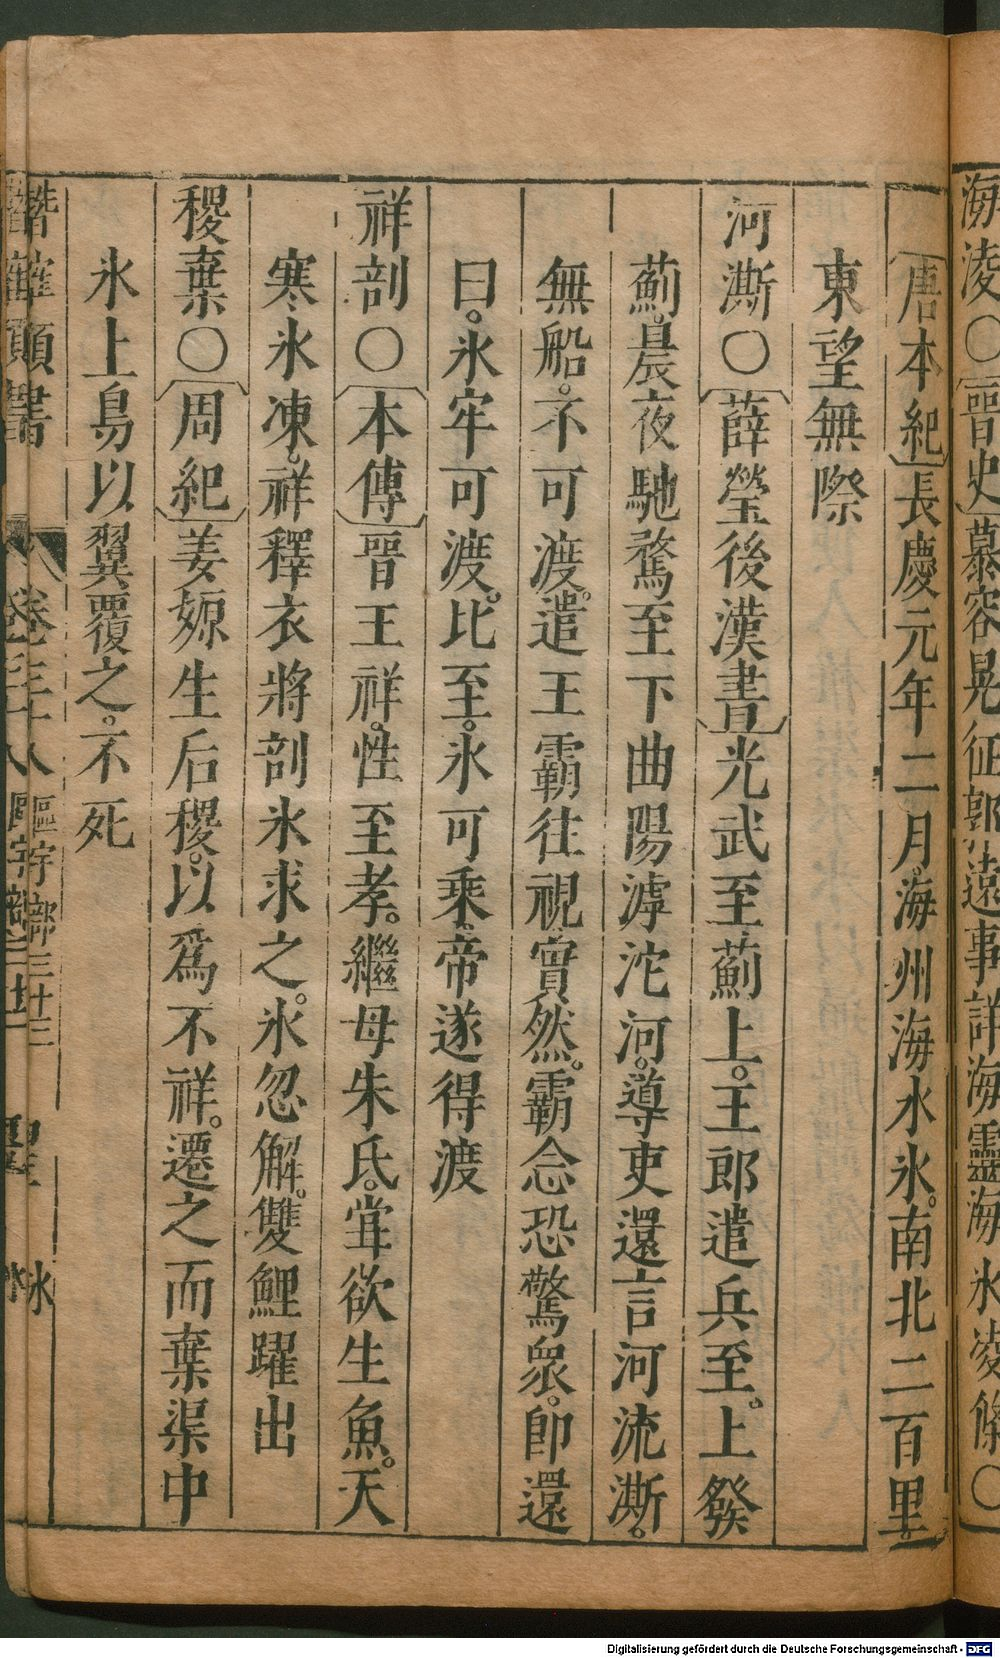 海凌〇〔晉史〕慕容晃征郭遠事詳海靈海氷凌條〇
〔唐本紀〕長慶元年二月。海州海水氷。南北二百里。
東望無際
河澌〇〔薛瑩後漢書〕光武至薊上。王郎遣兵至。上發
薊。晨夜馳騖至下曲陽滹沱河。導吏還言河流澌。
無船。不可渡。遣王霸往視。實然。霸念恐驚衆。卽還
曰。氷牢可渡。比至。氷可乘。帝遂得渡
祥剖〇〔本傳〕晉王祥。性至孝。繼母朱氏。甞欲生魚。天
寒氷凍。祥釋衣將剖氷求之。氷忽解。雙鯉躍出
稷棄〇〔周紀〕姜嫄生后稷。以爲不祥。遷之而棄渠中
氷上鳥以翼覆之。不死
潛確類書 卷三十八 區宇部三十三 氷
Digitalisierung gefördert durch die Deutsche Forschungsgemeinschaft - DFG